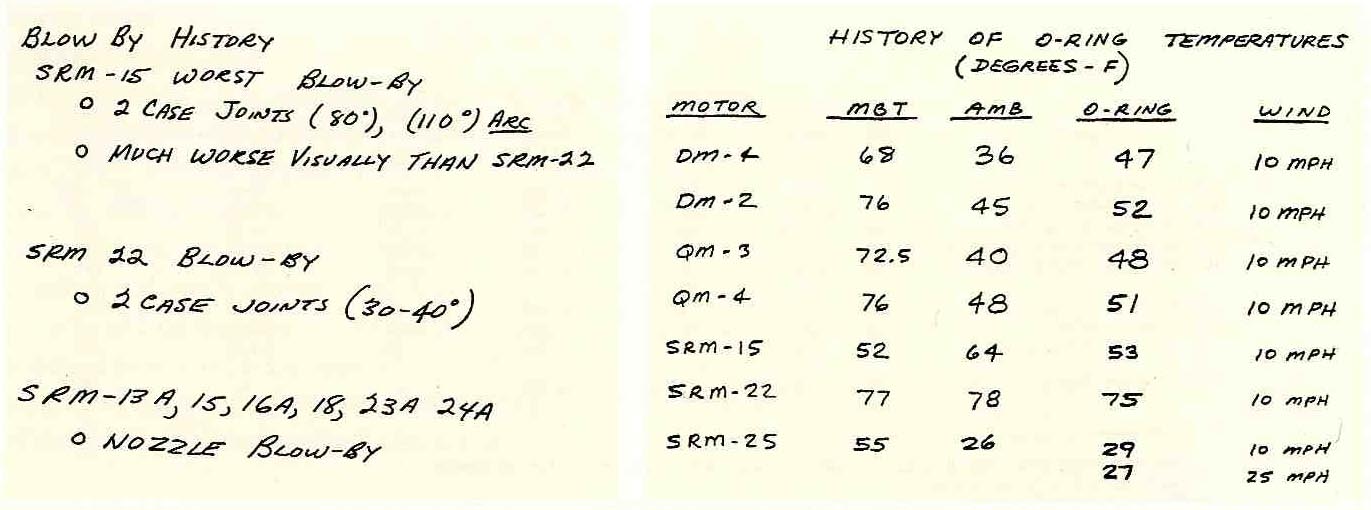 BLOW BY HISTORY
SRM-15 WORST BLOW-BY
o 2 CASE JOINTS (80°), (110°) ARC
o MUCH WORSE VISUALLY THAN SRM-22
SRM 22 BLOW-BY
o 2 CASE JOINTS (30-40°)
SRM-13A, 15, 16A, 18, 23A 24A
o NOZZLE BLOW-BY
HISTORY OF O-RING TEMPERATURES
(DEGREES-F)
MOTOR MBT AMB O-RING WIND
DM-4 68 36 47 10 MPH
DM-2 76 45 52 10 MPH
QM-3 72.5 40 48 10 MPH
QM-4 76 48 51 10 MPH
SRM-15 52 64 53 10 MPH
SRM-22 77 78 75 10 MPH
SRM-25 55 26 29 10 MPH
27 25 MPH